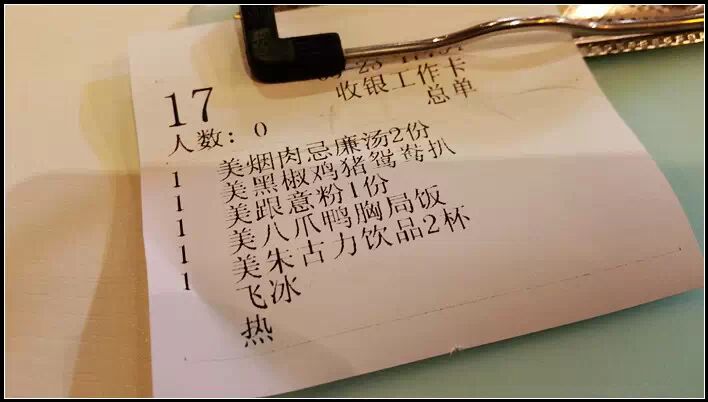 17
收银工作卡
总单
人数：0
1 美烟肉忌廉汤2份
1 美黑椒鸡猪鸳鸯扒
1 美跟意粉1份
1 美八爪鸭胸局饭
1 美朱古力饮品2杯
飞冰
热